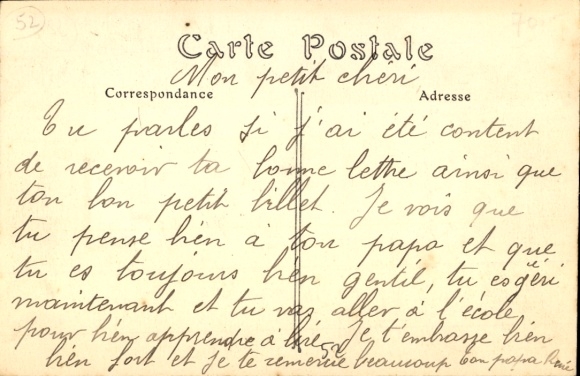 52
70
Carte Postale
Mon petit chéri
Correspondance
Adresse
Tu parles si j'ai été content
de recevoir ta bonne lettre ainsi que
ton bon petit billet. Je vois que
tu pense bien à ton papa et que
tu es toujours bien gentil, tu es guéri
maintenant et tu vas aller à l'école
pour bien apprendre à lire. Je t'embrasse bien
bien fort et je te remercie beaucoup ton papa René